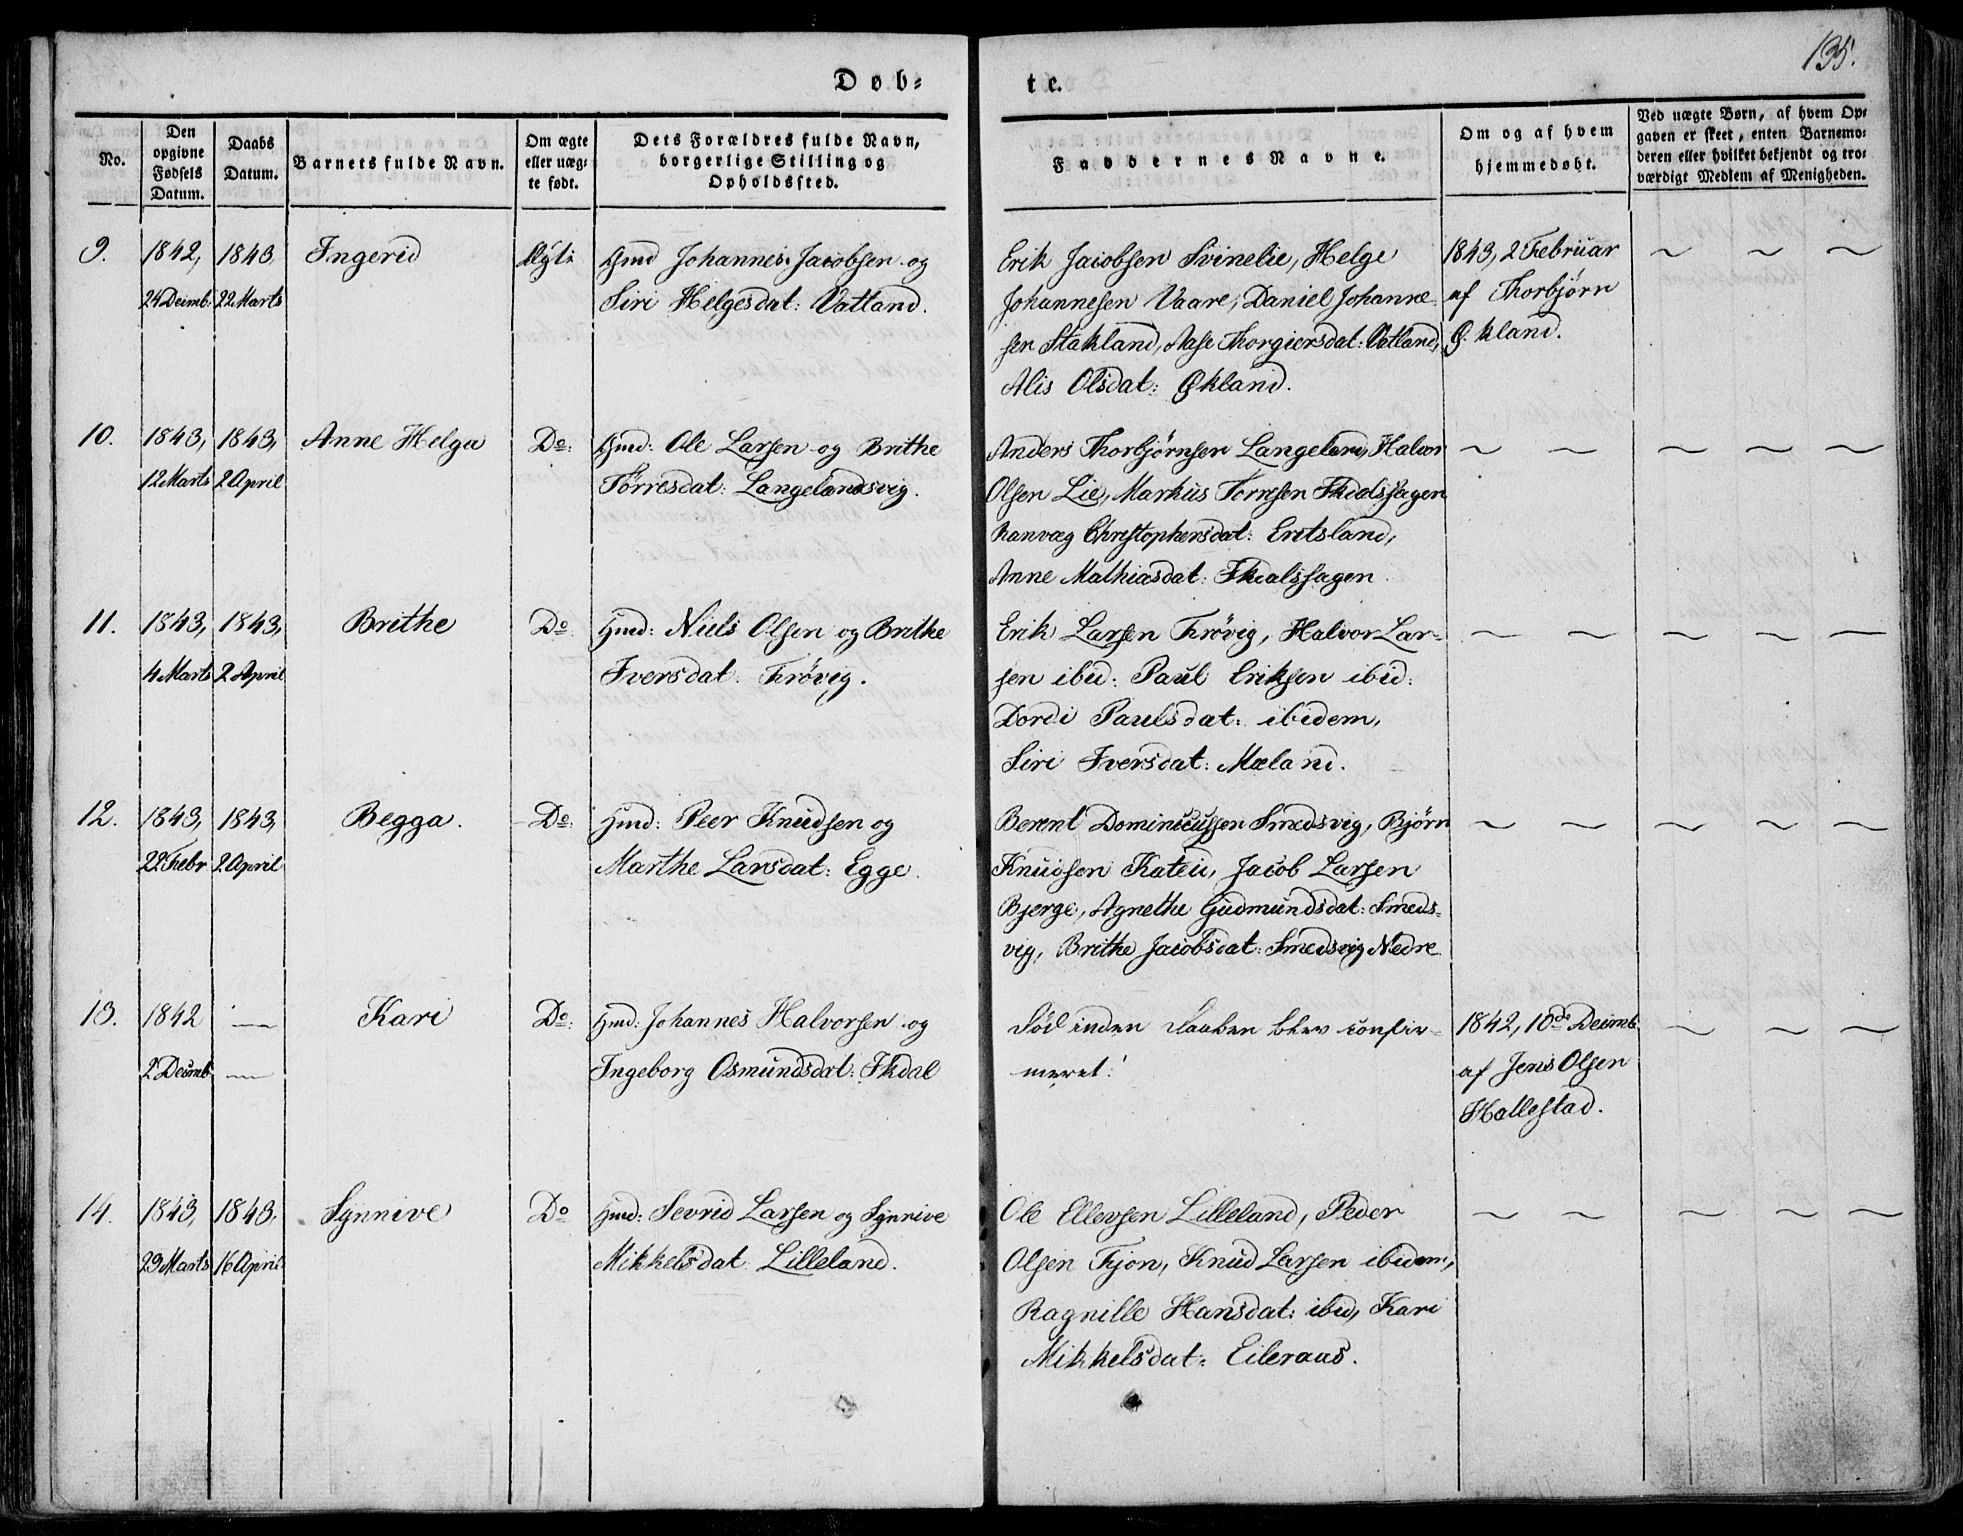 135.
Døb=
te.
No.
Den
opgivne
Fødsels
Datum.
Daabs
Datum.
Barnets fulde Navn.
Om ægte
eller uæg=
te født.
Dets Forældres fulde Navn,
borgerlige Stilling og
Opholdssted.
Faddernes Navne.
Om og af hvem
hjemmedøbt.
Ved uægte Børn, af hvem Op=
gaven er skeet, enten Barnemo=
deren eller hvilket bekjendt og tro=
værdigt Medlem af Menigheden.
9. 1842, 1843 Ingerid Ægt: Gmd Johannes Jacobsen og
24 Decmb. 22 Marts Siri Helgesdat: Vatland.
Erik Jacobsen Svinelie, Helge
Johannesen Vaare, Daniel Johanne-
sen Stakland, Aase Thorgiersdat: Vatland,
Alis Olsdat: Økland.
1843, 2 Februar
af Thorbjørn
Økland.
10. 1843, 1843, Anne Helga Do: Gmd: Ole Larsen og Brithe
12 Marts 2 April Tørresdat: Langelandsvig.
Anders Thorbjørnsen Langeland, Halvor
Olsen Lie, Markus Torresen
Ranvæg Christophersdat:
Anne Mathiasdat:
11. 1843, 1843, Brithe Do Gmd: Niels Olsen og Brithe
4 Marts 2 April Iversdat: Trøvig.
Erik Larsen Trøvig, Halvor Lar=
sen ibid: Paul Eriksen ibid:
Dordi Paulsdat: ibidem,
Siri Iversdat: Mæland.
12. 1843, 1843, Begga. Do: Gmd: Peer Knudsen og
22 Febr 2 April Marthe Larsdat: Egge.
Berent Dominicussen Smedsvig, Bjørn
Knudsen Kateu, Jacob Larsen
Bjerge, Agnethe Gudmundsdat: Smeds=
vig, Brithe Jacobsdat: Smedsvig Nedre
13. 1842 Kari Do: Gmd: Johannes Halvorsen og
2 Decmb Ingeborg Osmundsdat:
Død inden Daaben blev confir-
meret!
1842, 10de Decmb.
af Jens Olsen
Hallestad.
14. 1843, 1843. Synnive Do Gmd: Sevrid Larsen og Synnive
29 Marts 16 April Mikkelsdat: Lilleland.
Ole Ellevsen Lilleland, Peder
Olsen Fjon, Knud Larsen ibidem,
Ragnille Hansdat: ibid, Kari
Mikkelsdat: Eileraas.